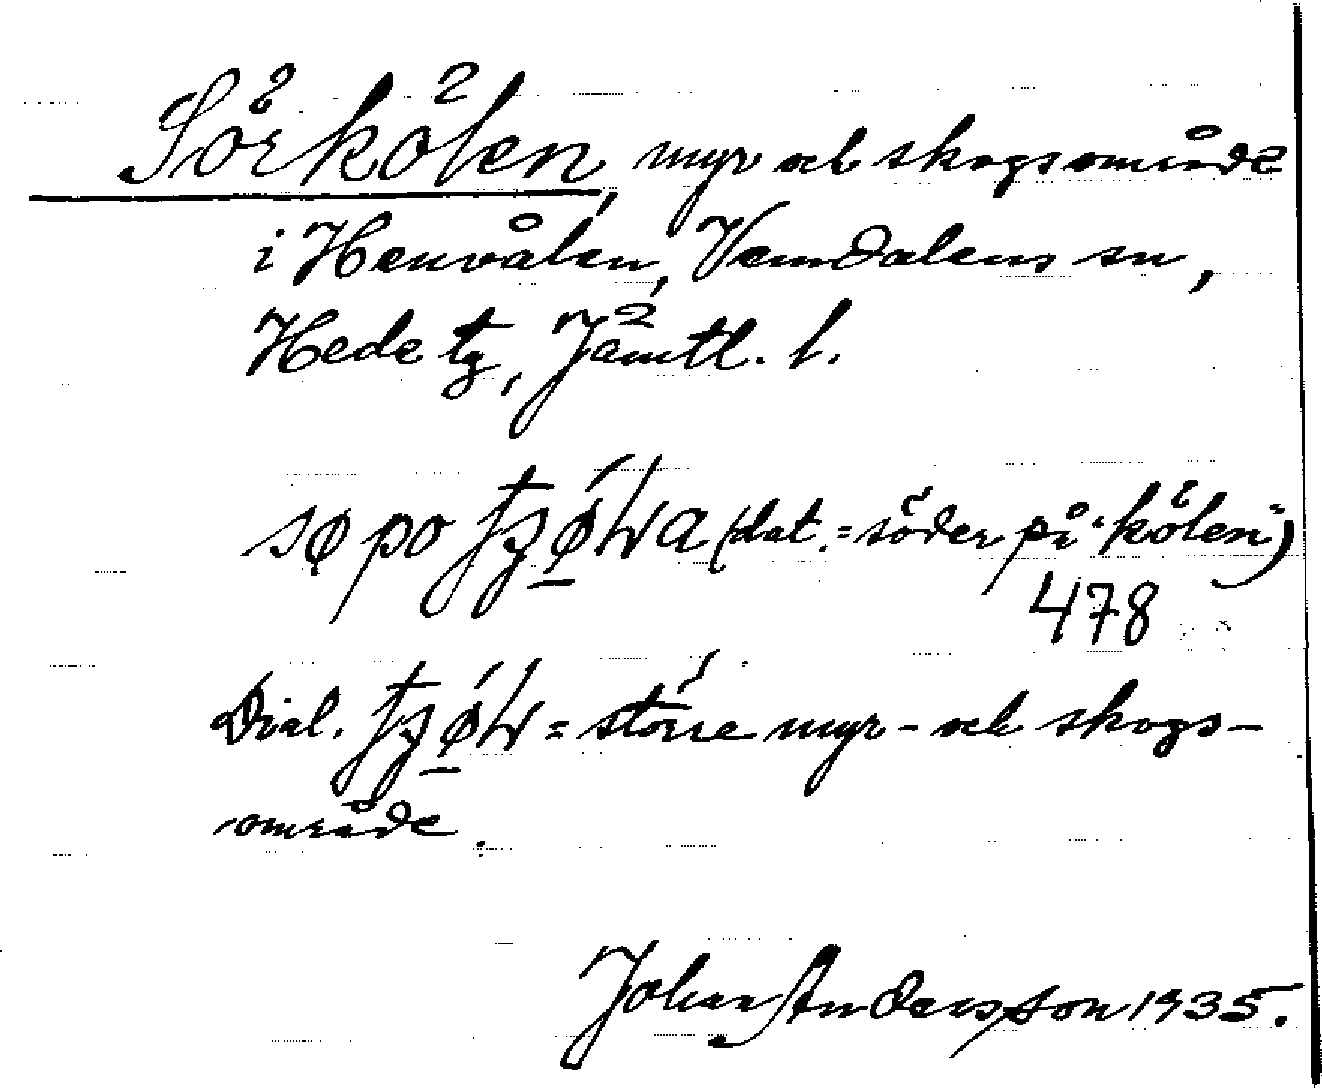 Sörkölen, myr och skogsområde
i Henvålen, Vemdalens sn,
Hede tg, Jämtl. l.
sø po (dat. = söder på "kölen")
478
Dial. = större myr- och skogs-
område.
Johan Andersson 1935.